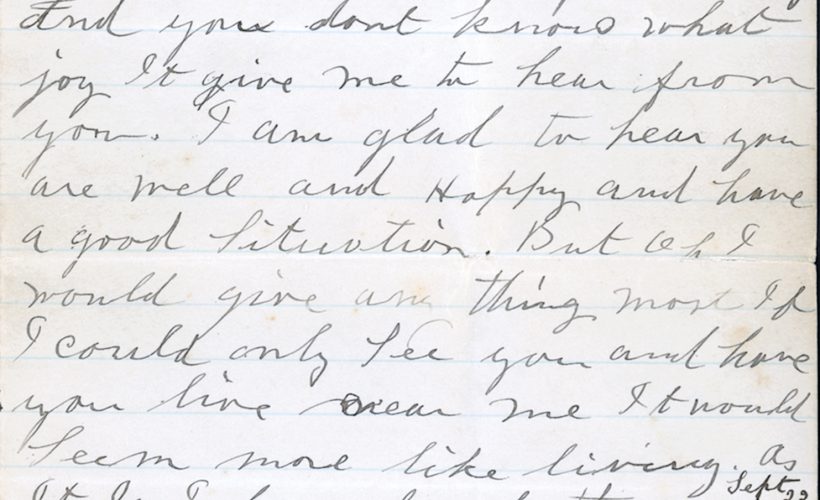 And you dont know what
joy It give me to hear from
you. I am glad to hear you
are well and Happy and have
a good Situation. But Oh I
would give any thing most If
I could only See you and have
you live near me It would
Seem more like living. As
Sept 22